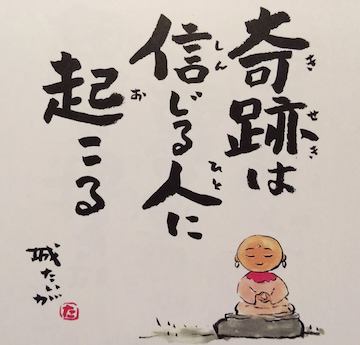 奇跡は
きせき
信じる人に
しん ひと
起こる
お
城たいが